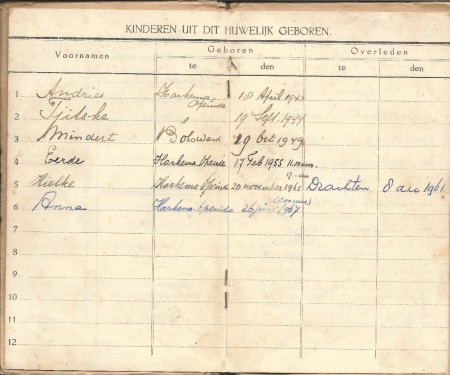 KINDEREN UIT DIT HUWELIJK GEBOREN.
Voornamen Geboren Overleden
te den te den
1 Andries Harkema Opeinde 18 April
2 Tjitske " 19 Sept.
3 Mindert Bolsward 29 Oct 1949
4 Eerde Harkema Opeinde 17 Feb 1955
5 Hielke Harkema Opeinde 20 november Drachten 1961
6 Anna Harkema Opeinde 26 juni 1967
7
8
9
10
11
12